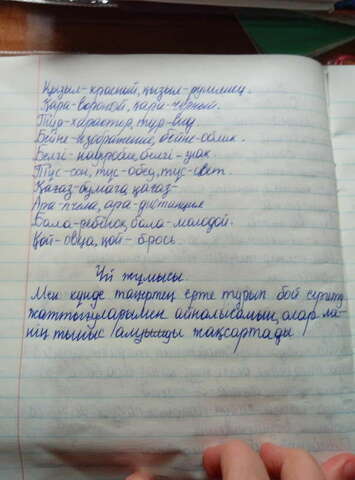 Қызыл-красный, қызыл-румянец.
Қара-вороной, қара-черный.
Түр-характер, түр-вид.
Бейне-изображение, бейне-облик.
Белгі- белгі-знак
Түс-сон, түс-обед, түс-цвет.
Қағаз-бумага, қағаз-
Ара-пчела, ара-дистанция
Бала-ребёнок, бала-молодой.
Қой-овца, қой-брось.
Үй жұмысы.
Мен күнде таңертең ерте тұрып бой сергіту
жаттығуларымен айналысамын, олар ме-
нің тыныс алуымды жақсартады